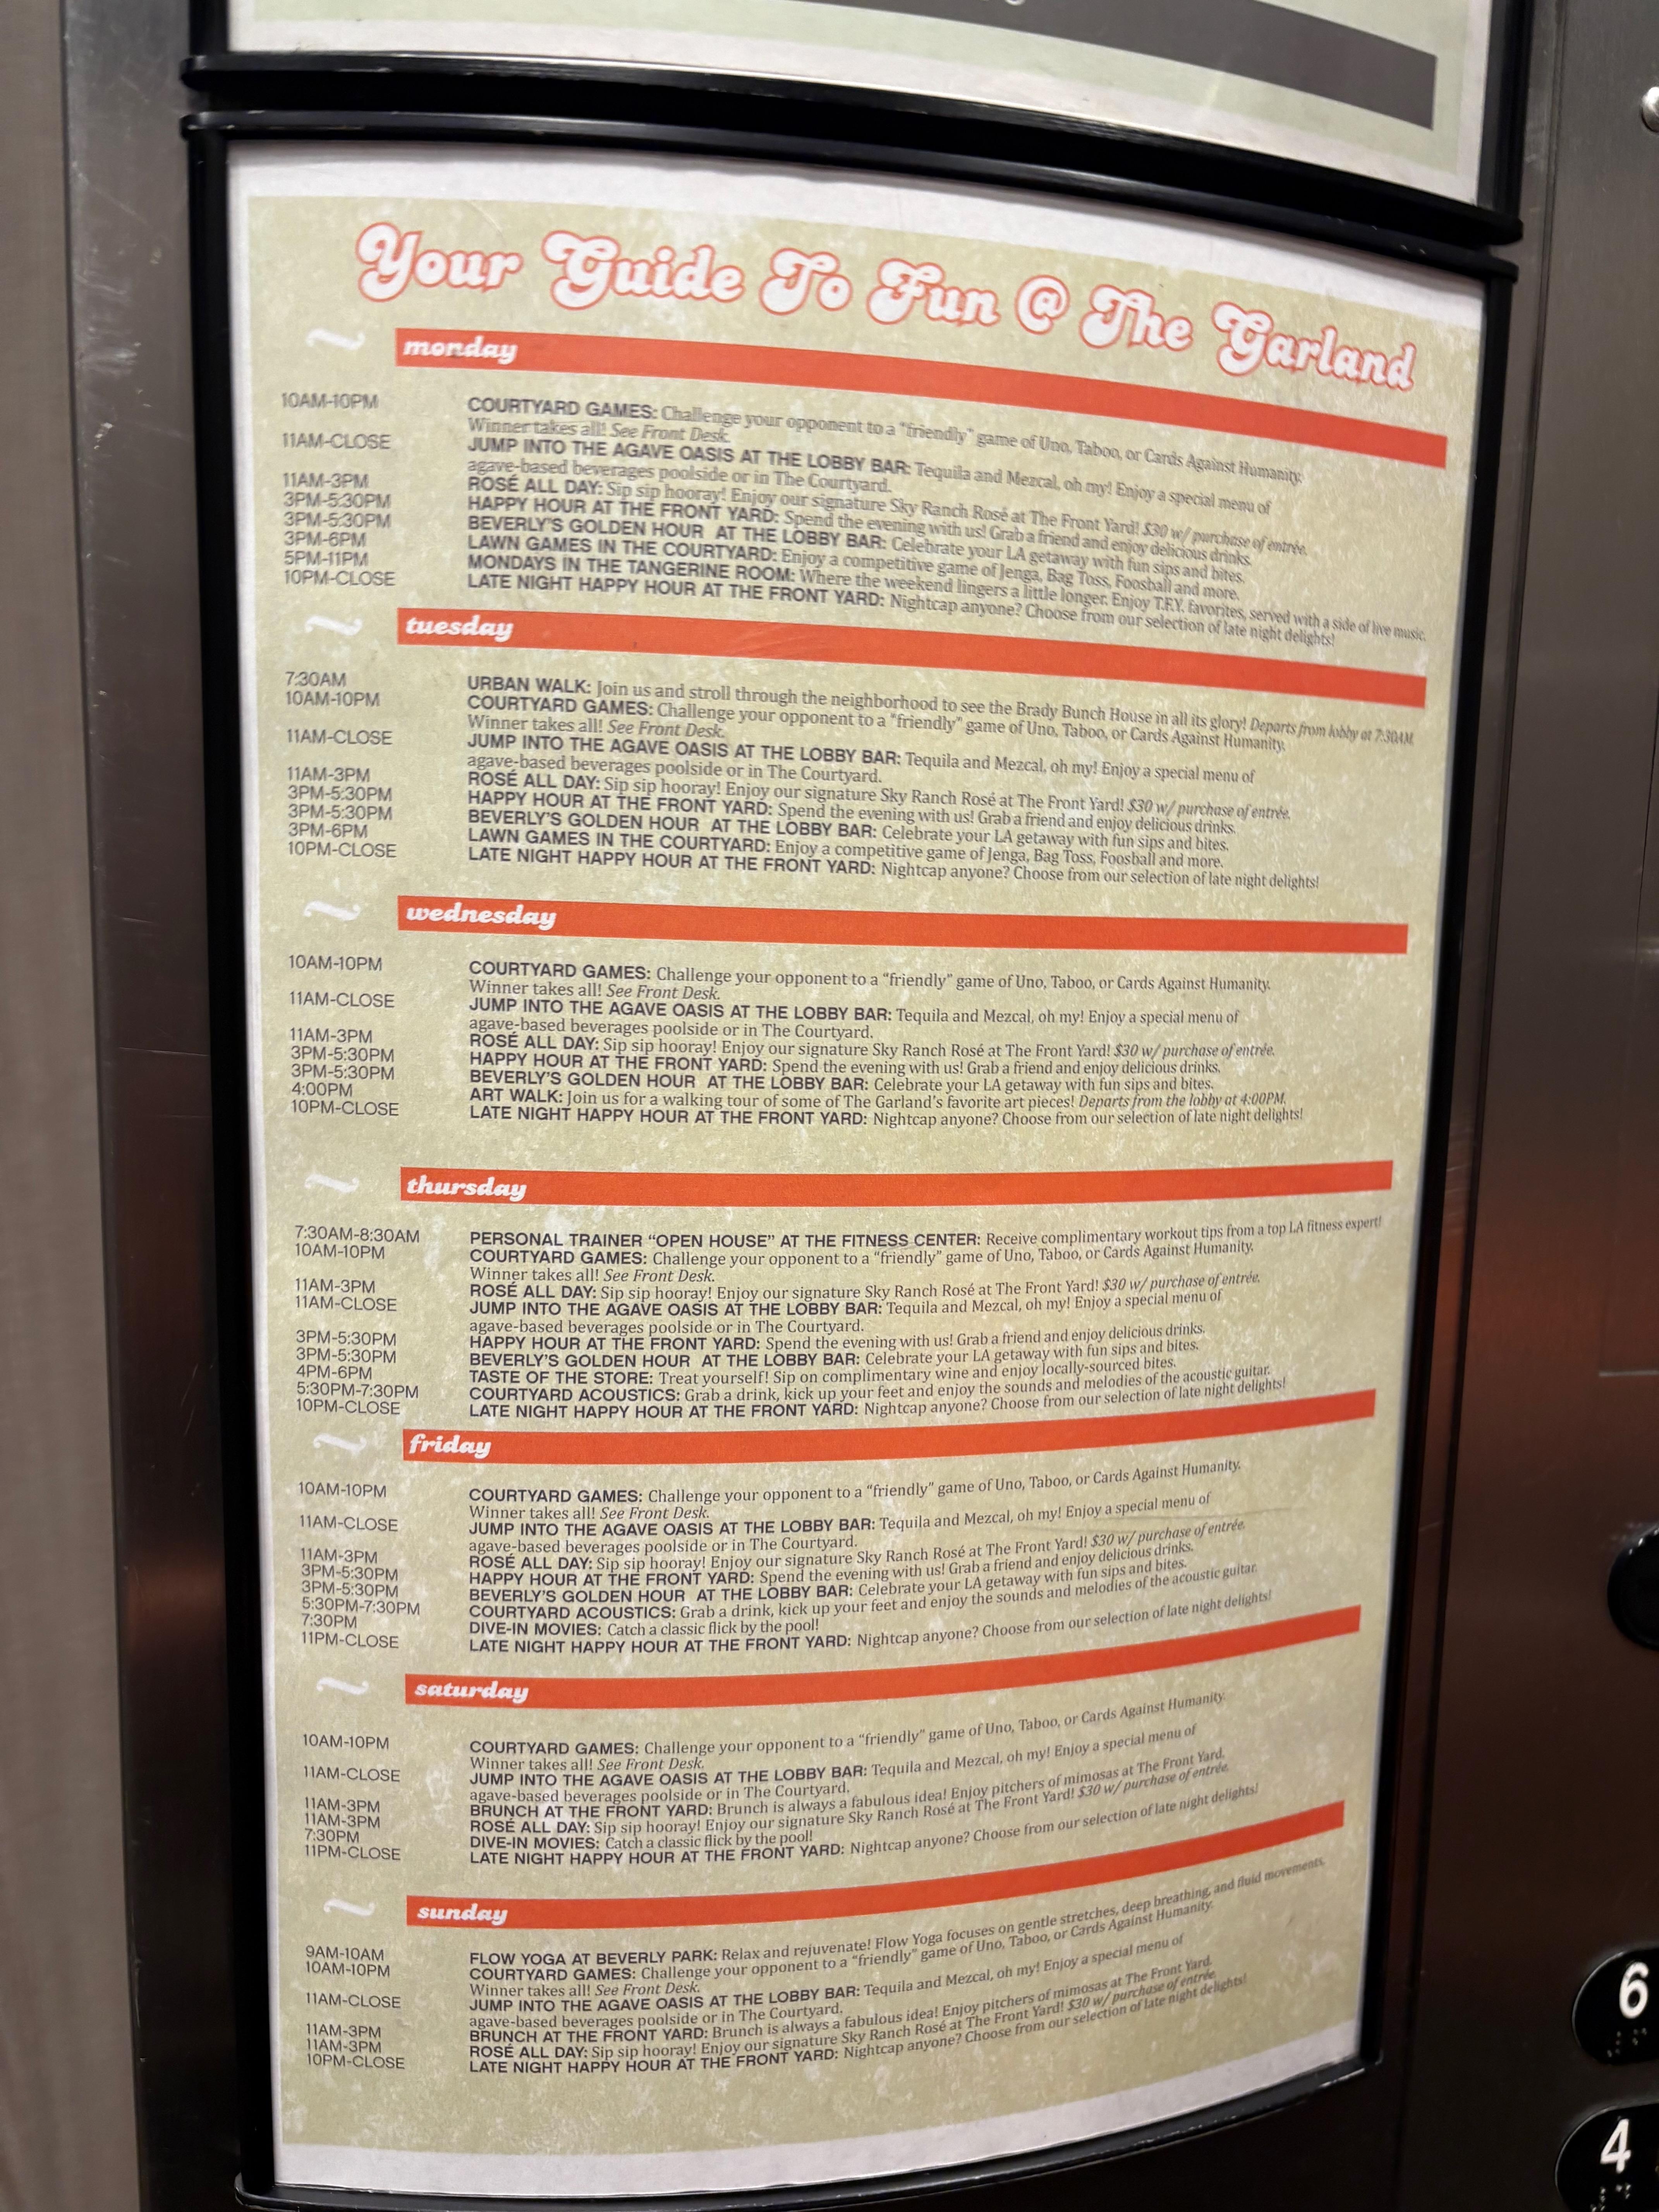 Your Guide To Fun @ The Garland
monday
10AM-10PM COURTYARD GAMES: Challenge your opponent to a "friendly" game of Uno, Taboo, or Cards Against Humanity.
Winner takes all! See Front Desk.
11AM-CLOSE JUMP INTO THE AGAVE OASIS AT THE LOBBY BAR: Tequila and Mezcal, oh my! Enjoy a special menu of
agave-based beverages poolside or in The Courtyard.
11AM-3PM ROSÉ ALL DAY: Sip sip hooray! Enjoy our signature Sky Ranch Rosé at The Front Yard! $30 w/ purchase of entrée.
3PM-5:30PM HAPPY HOUR AT THE FRONT YARD: Spend the evening with us! Grab a friend and enjoy delicious drinks.
3PM-5:30PM BEVERLY'S GOLDEN HOUR AT THE LOBBY BAR: Celebrate your LA getaway with fun sips and bites.
3PM-6PM LAWN GAMES IN THE COURTYARD: Enjoy a competitive game of Jenga, Bag Toss, Foosball and more.
5PM-11PM MONDAYS IN THE TANGERINE ROOM: Where the weekend lingers a little longer. Enjoy T.F.Y. favorites, served with a side of live music.
10PM-CLOSE LATE NIGHT HAPPY HOUR AT THE FRONT YARD: Nightcap anyone? Choose from our selection of late night delights!
tuesday
7:30AM URBAN WALK: Join us and stroll through the neighborhood to see the Brady Bunch House in all its glory! Departs from lobby at 7:30AM.
10AM-10PM COURTYARD GAMES: Challenge your opponent to a "friendly" game of Uno, Taboo, or Cards Against Humanity.
Winner takes all! See Front Desk.
11AM-CLOSE JUMP INTO THE AGAVE OASIS AT THE LOBBY BAR: Tequila and Mezcal, oh my! Enjoy a special menu of
agave-based beverages poolside or in The Courtyard.
11AM-3PM ROSÉ ALL DAY: Sip sip hooray! Enjoy our signature Sky Ranch Rosé at The Front Yard! $30 w/ purchase of entrée.
3PM-5:30PM HAPPY HOUR AT THE FRONT YARD: Spend the evening with us! Grab a friend and enjoy delicious drinks.
3PM-5:30PM BEVERLY'S GOLDEN HOUR AT THE LOBBY BAR: Celebrate your LA getaway with fun sips and bites.
3PM-6PM LAWN GAMES IN THE COURTYARD: Enjoy a competitive game of Jenga, Bag Toss, Foosball and more.
10PM-CLOSE LATE NIGHT HAPPY HOUR AT THE FRONT YARD: Nightcap anyone? Choose from our selection of late night delights!
wednesday
10AM-10PM COURTYARD GAMES: Challenge your opponent to a "friendly" game of Uno, Taboo, or Cards Against Humanity.
Winner takes all! See Front Desk.
11AM-CLOSE JUMP INTO THE AGAVE OASIS AT THE LOBBY BAR: Tequila and Mezcal, oh my! Enjoy a special menu of
agave-based beverages poolside or in The Courtyard.
11AM-3PM ROSÉ ALL DAY: Sip sip hooray! Enjoy our signature Sky Ranch Rosé at The Front Yard! $30 w/ purchase of entrée.
3PM-5:30PM HAPPY HOUR AT THE FRONT YARD: Spend the evening with us! Grab a friend and enjoy delicious drinks.
3PM-5:30PM BEVERLY'S GOLDEN HOUR AT THE LOBBY BAR: Celebrate your LA getaway with fun sips and bites.
4:00PM ART WALK: Join us for a walking tour of some of The Garland's favorite art pieces! Departs from the lobby at 4:00PM.
10PM-CLOSE LATE NIGHT HAPPY HOUR AT THE FRONT YARD: Nightcap anyone? Choose from our selection of late night delights!
thursday
7:30AM-8:30AM PERSONAL TRAINER "OPEN HOUSE" AT THE FITNESS CENTER: Receive complimentary workout tips from a top LA fitness expert!
10AM-10PM COURTYARD GAMES: Challenge your opponent to a "friendly" game of Uno, Taboo, or Cards Against Humanity.
Winner takes all! See Front Desk.
11AM-3PM ROSÉ ALL DAY: Sip sip hooray! Enjoy our signature Sky Ranch Rosé at The Front Yard! $30 w/ purchase of entrée.
11AM-CLOSE JUMP INTO THE AGAVE OASIS AT THE LOBBY BAR: Tequila and Mezcal, oh my! Enjoy a special menu of
agave-based beverages poolside or in The Courtyard.
3PM-5:30PM HAPPY HOUR AT THE FRONT YARD: Spend the evening with us! Grab a friend and enjoy delicious drinks.
3PM-5:30PM BEVERLY'S GOLDEN HOUR AT THE LOBBY BAR: Celebrate your LA getaway with fun sips and bites.
4PM-6PM TASTE OF THE STORE: Treat yourself! Sip on complimentary wine and enjoy locally-sourced bites.
5:30PM-7:30PM COURTYARD ACOUSTICS: Grab a drink, kick up your feet and enjoy the sounds and melodies of the acoustic guitar.
10PM-CLOSE LATE NIGHT HAPPY HOUR AT THE FRONT YARD: Nightcap anyone? Choose from our selection of late night delights!
friday
10AM-10PM COURTYARD GAMES: Challenge your opponent to a "friendly" game of Uno, Taboo, or Cards Against Humanity.
Winner takes all! See Front Desk.
11AM-CLOSE JUMP INTO THE AGAVE OASIS AT THE LOBBY BAR: Tequila and Mezcal, oh my! Enjoy a special menu of
agave-based beverages poolside or in The Courtyard.
11AM-3PM ROSÉ ALL DAY: Sip sip hooray! Enjoy our signature Sky Ranch Rosé at The Front Yard! $30 w/ purchase of entrée.
3PM-5:30PM HAPPY HOUR AT THE FRONT YARD: Spend the evening with us! Grab a friend and enjoy delicious drinks.
3PM-5:30PM BEVERLY'S GOLDEN HOUR AT THE LOBBY BAR: Celebrate your LA getaway with fun sips and bites.
5:30PM-7:30PM COURTYARD ACOUSTICS: Grab a drink, kick up your feet and enjoy the sounds and melodies of the acoustic guitar.
7:30PM DIVE-IN MOVIES: Catch a classic flick by the pool!
11PM-CLOSE LATE NIGHT HAPPY HOUR AT THE FRONT YARD: Nightcap anyone? Choose from our selection of late night delights!
saturday
10AM-10PM COURTYARD GAMES: Challenge your opponent to a "friendly" game of Uno, Taboo, or Cards Against Humanity.
Winner takes all! See Front Desk.
11AM-CLOSE JUMP INTO THE AGAVE OASIS AT THE LOBBY BAR: Tequila and Mezcal, oh my! Enjoy a special menu of
agave-based beverages poolside or in The Courtyard.
11AM-3PM BRUNCH AT THE FRONT YARD: Brunch is always a fabulous idea! Enjoy pitchers of mimosas at The Front Yard.
11AM-3PM ROSÉ ALL DAY: Sip sip hooray! Enjoy our signature Sky Ranch Rosé at The Front Yard! $30 w/ purchase of entrée.
7:30PM DIVE-IN MOVIES: Catch a classic flick by the pool!
11PM-CLOSE LATE NIGHT HAPPY HOUR AT THE FRONT YARD: Nightcap anyone? Choose from our selection of late night delights!
sunday
9AM-10AM FLOW YOGA AT BEVERLY PARK: Relax and rejuvenate! Flow Yoga focuses on gentle stretches, deep breathing, and fluid movements.
10AM-10PM COURTYARD GAMES: Challenge your opponent to a "friendly" game of Uno, Taboo, or Cards Against Humanity.
Winner takes all! See Front Desk.
11AM-CLOSE JUMP INTO THE AGAVE OASIS AT THE LOBBY BAR: Tequila and Mezcal, oh my! Enjoy a special menu of
agave-based beverages poolside or in The Courtyard.
11AM-3PM BRUNCH AT THE FRONT YARD: Brunch is always a fabulous idea! Enjoy pitchers of mimosas at The Front Yard.
11AM-3PM ROSÉ ALL DAY: Sip sip hooray! Enjoy our signature Sky Ranch Rosé at The Front Yard! $30 w/ purchase of entrée.
10PM-CLOSE LATE NIGHT HAPPY HOUR AT THE FRONT YARD: Nightcap anyone? Choose from our selection of late night delights!
6
4